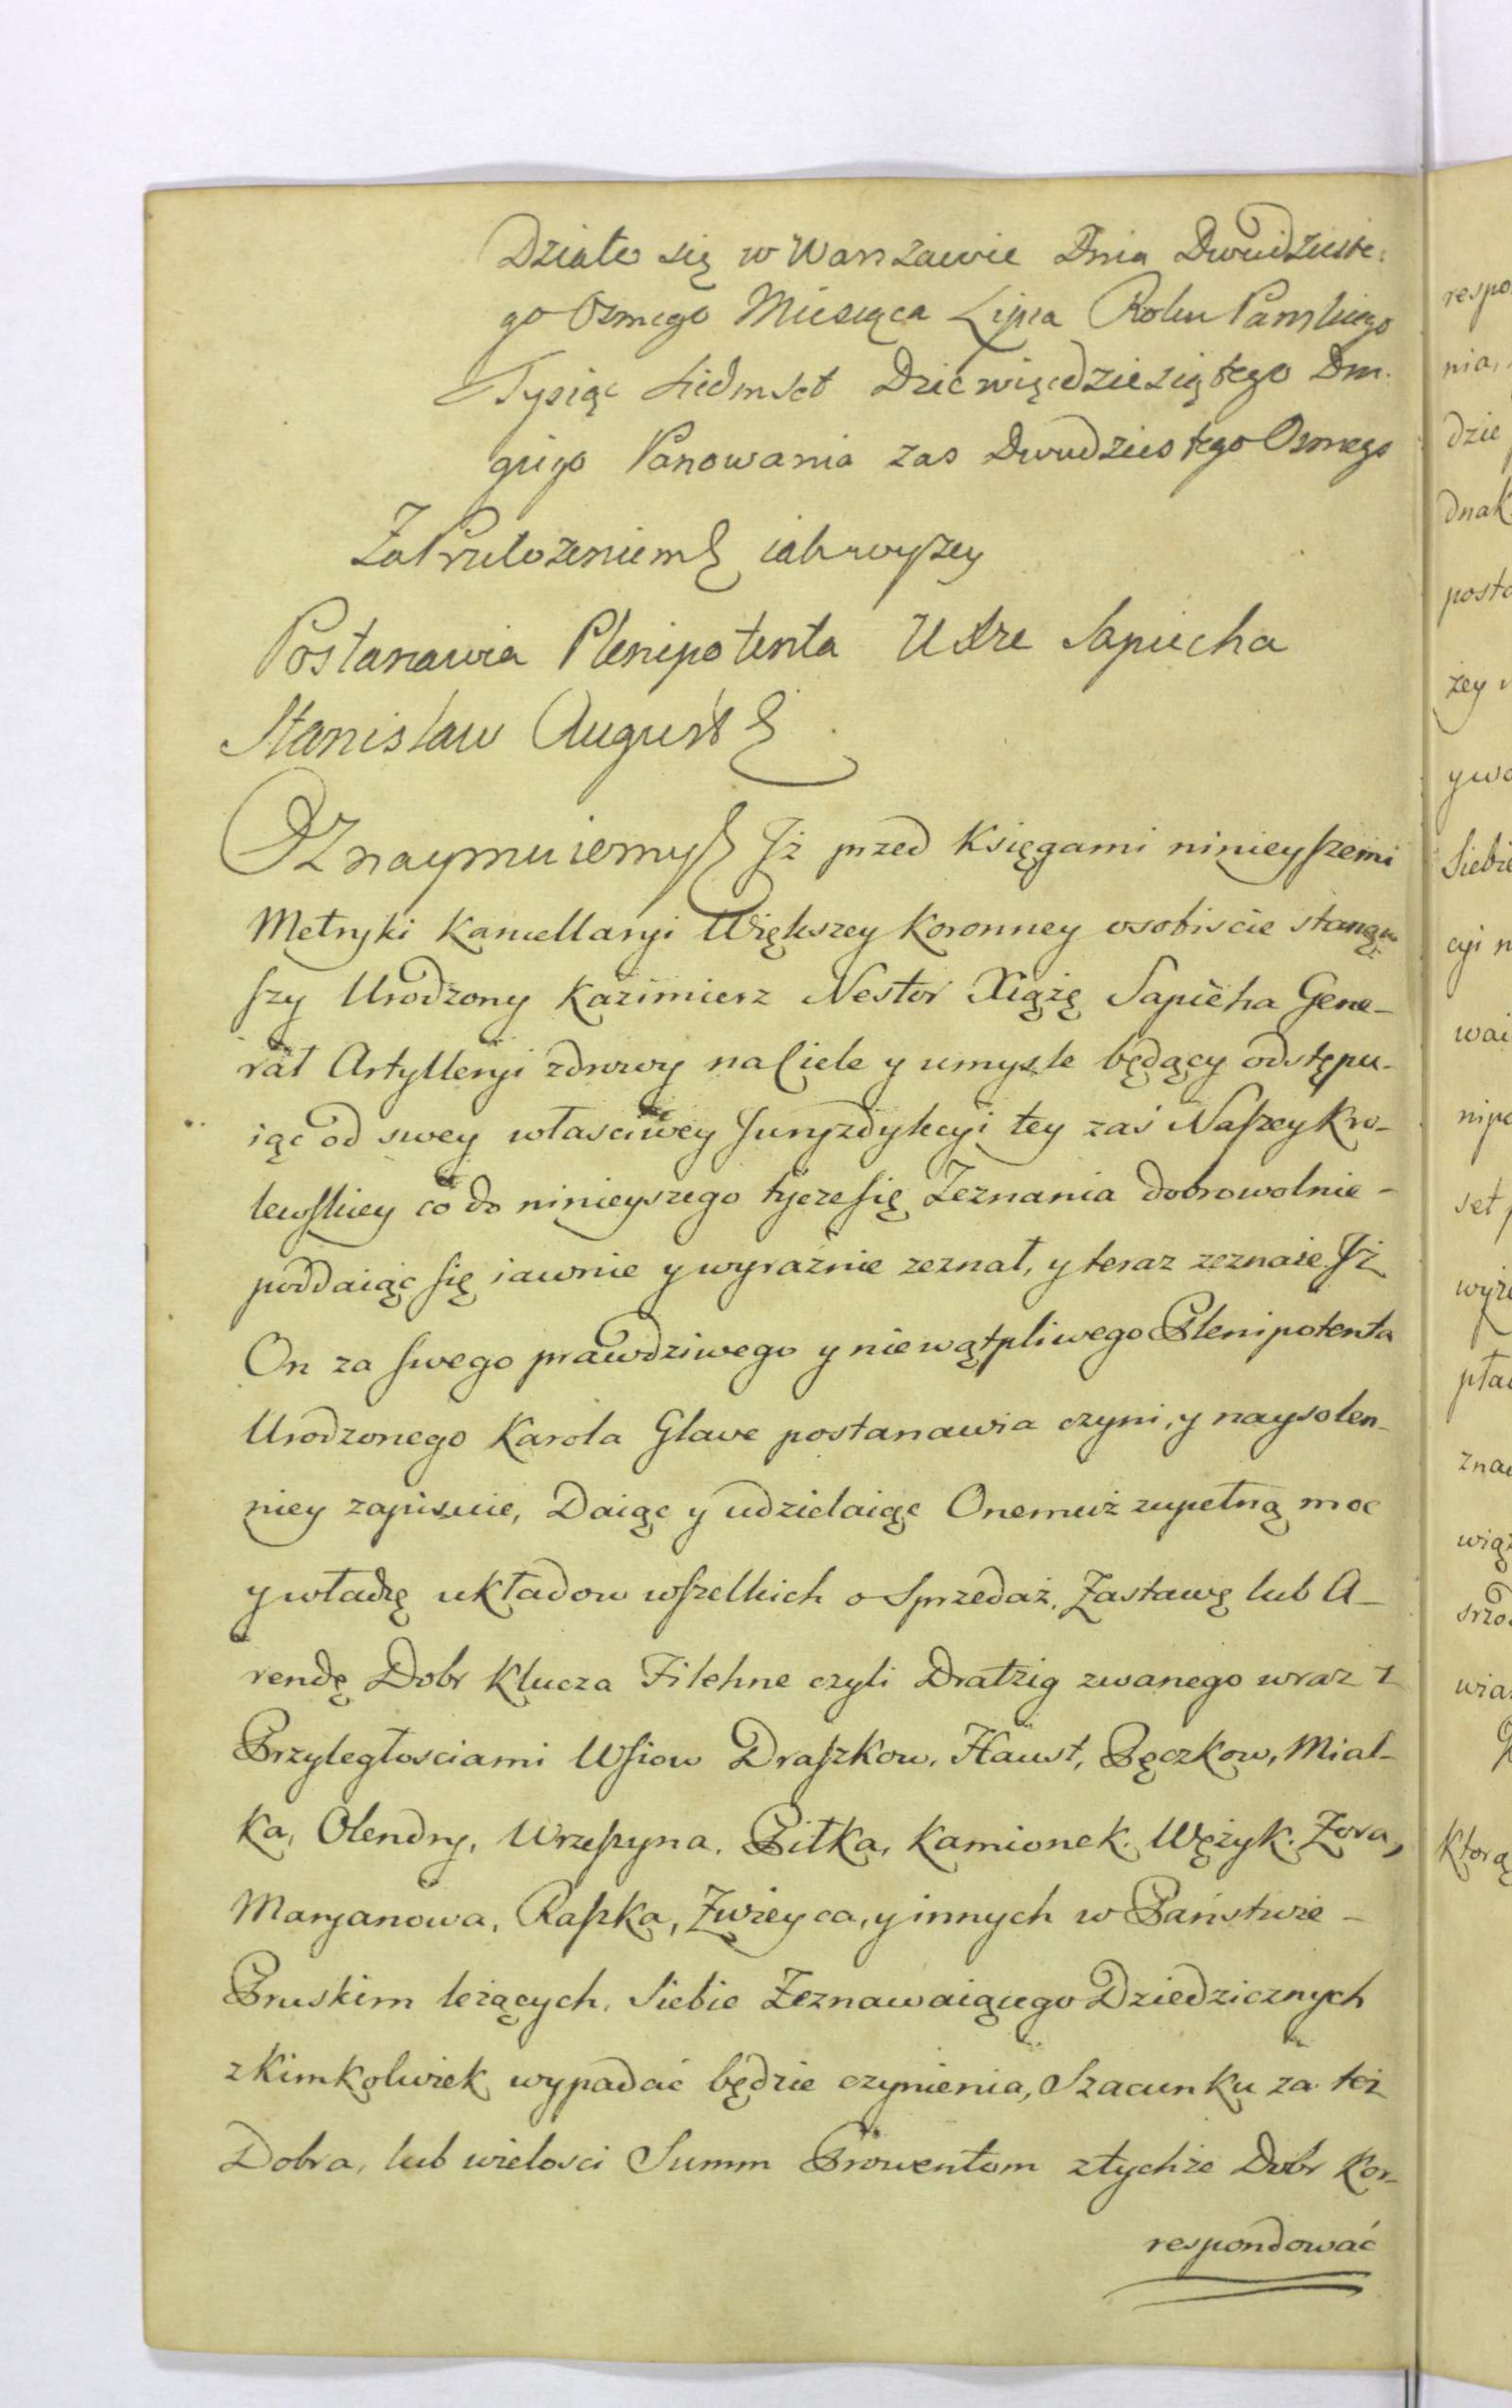 Działo się w Warszawie Dnia Dwudzieste:
go Osmego Miesiąca Lipca Roku Pańskiego
Tysiąc Siedmset Dziewięćdziesiątego Dru:
giego Panowania zas Dwudziestego Osmego
Za Przełożeniem jak wyszey
Postanawia Plenipotenta Udze Sapiecha
Stanisław August
Oznaymuiemy Iż przed Księgami ninieyszemi
Metryki Kancellaryi Większey Koronney osobiście stanąw
szy Urodzony Kazimierz Nestor Xiążę Sapieha Gene-
rał Artylleryi zdrowy na Ciele y umysle będący odstępu-
iąc od swey własciwey Juryzdykcyi tey zaś Naszey Kro-
lewskiey co do ninieyszego tycze się Zeznania dobrowolnie -
poddaiąc się iawnie y wyraźnie zeznał, y teraz zeznaie Iż
On za swego prawdziwego y niewątpliwego Plenipotenta
Urodzonego Karola Glave postanawia czyni, y naysolen-
niey zapisuie, Daiąc y udzielaiąc Onemuż zupełną moc
y władzę układow wszelkich o Sprzedaż, Zastawę lub A-
rendę Dobr Klucza Filehne czyli Dratzig zwanego wraz z
Przyległosciami Wsiow Draszkow, Haust, Pęczkow, Mial-
ka, Olendry, Wrzeszyna, Piłka, Kamionek. Wężyk. Zora,
Maryanowa, Raszka, Zwieyca, y innych w Państwie -
Pruskim leżących, Siebie Zeznawaiącego Dziedzicznych
z kimkolwiek wypadać będzie czynienia, Szacunku za też
Dobra, lub wielosci Summ Prowentom z tychże Dobr Kor-
respondować
respo
nia,
dzie
dnak
posta
żey
ywo
Siebie
cyi n
wai
nipo
set
wyże
płac
znac
wiąz
srzo
wia
Ktorą